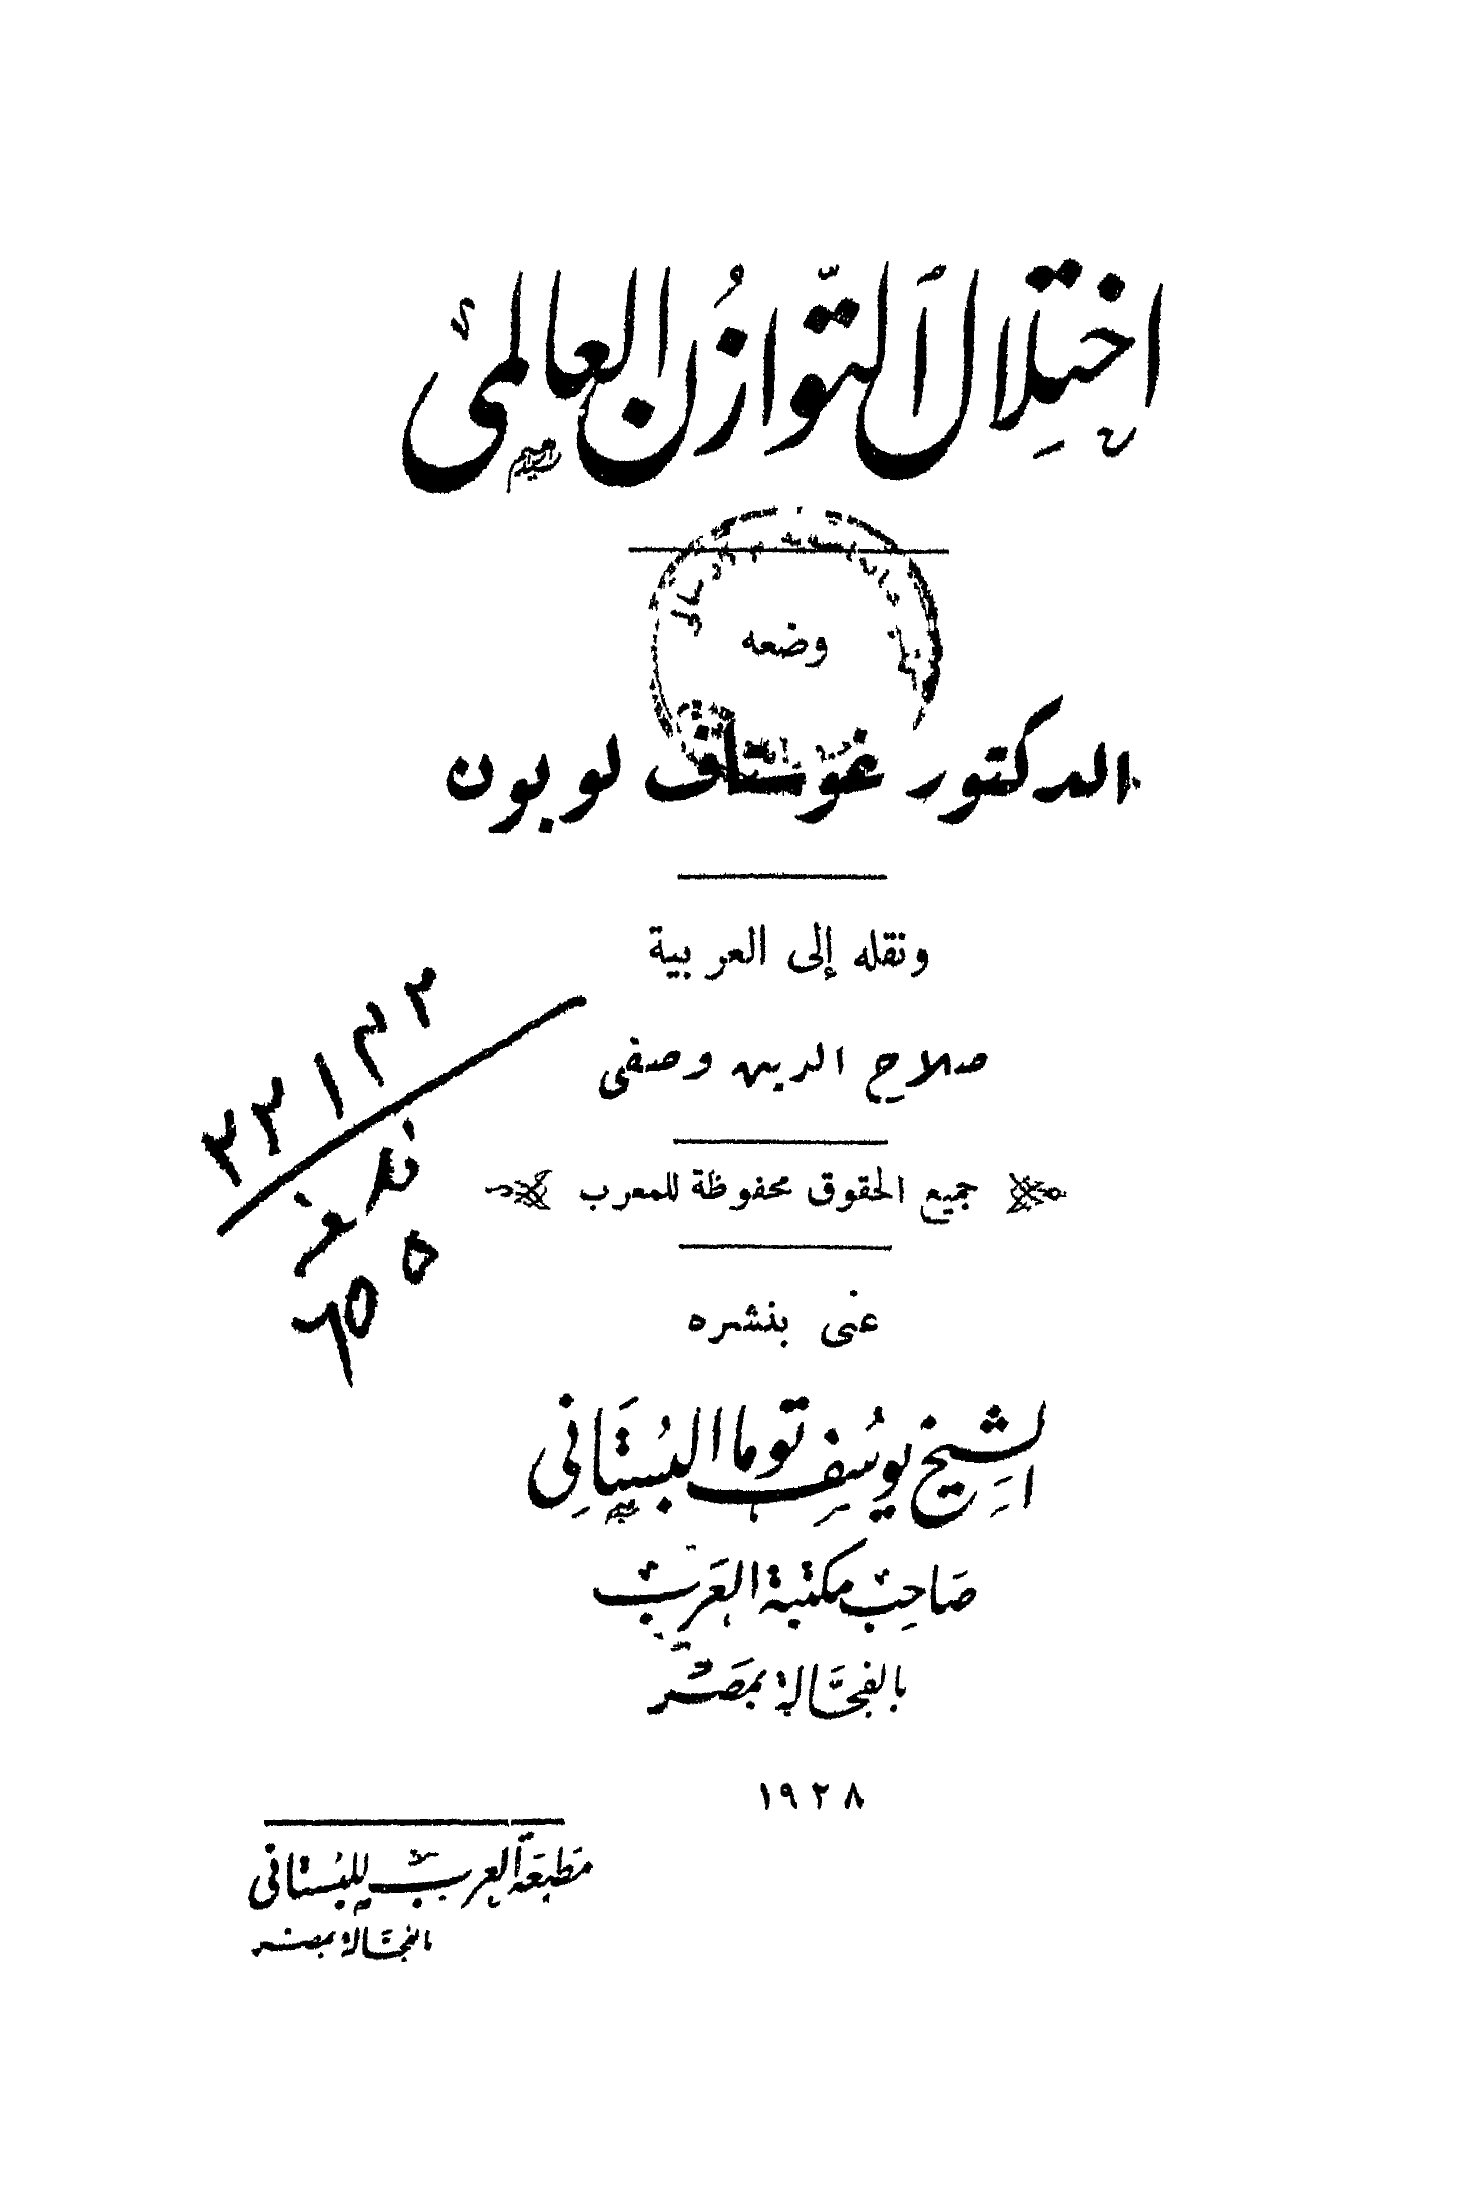 اختلال التوازن العالمي
وضعه
الدكتور غوستاف لوبون
ونقله إلى العربية
صلاح الدين وصفى
جميع الحقوق محفوظة للمعرب
عنى بنشره
الشيخ يوسف توما البستاني
صاحب مكتبة العرب
بالفجالة بمصر
١٩٢٨
مطبعة العرب للبستانى
بالفجالة بمصر